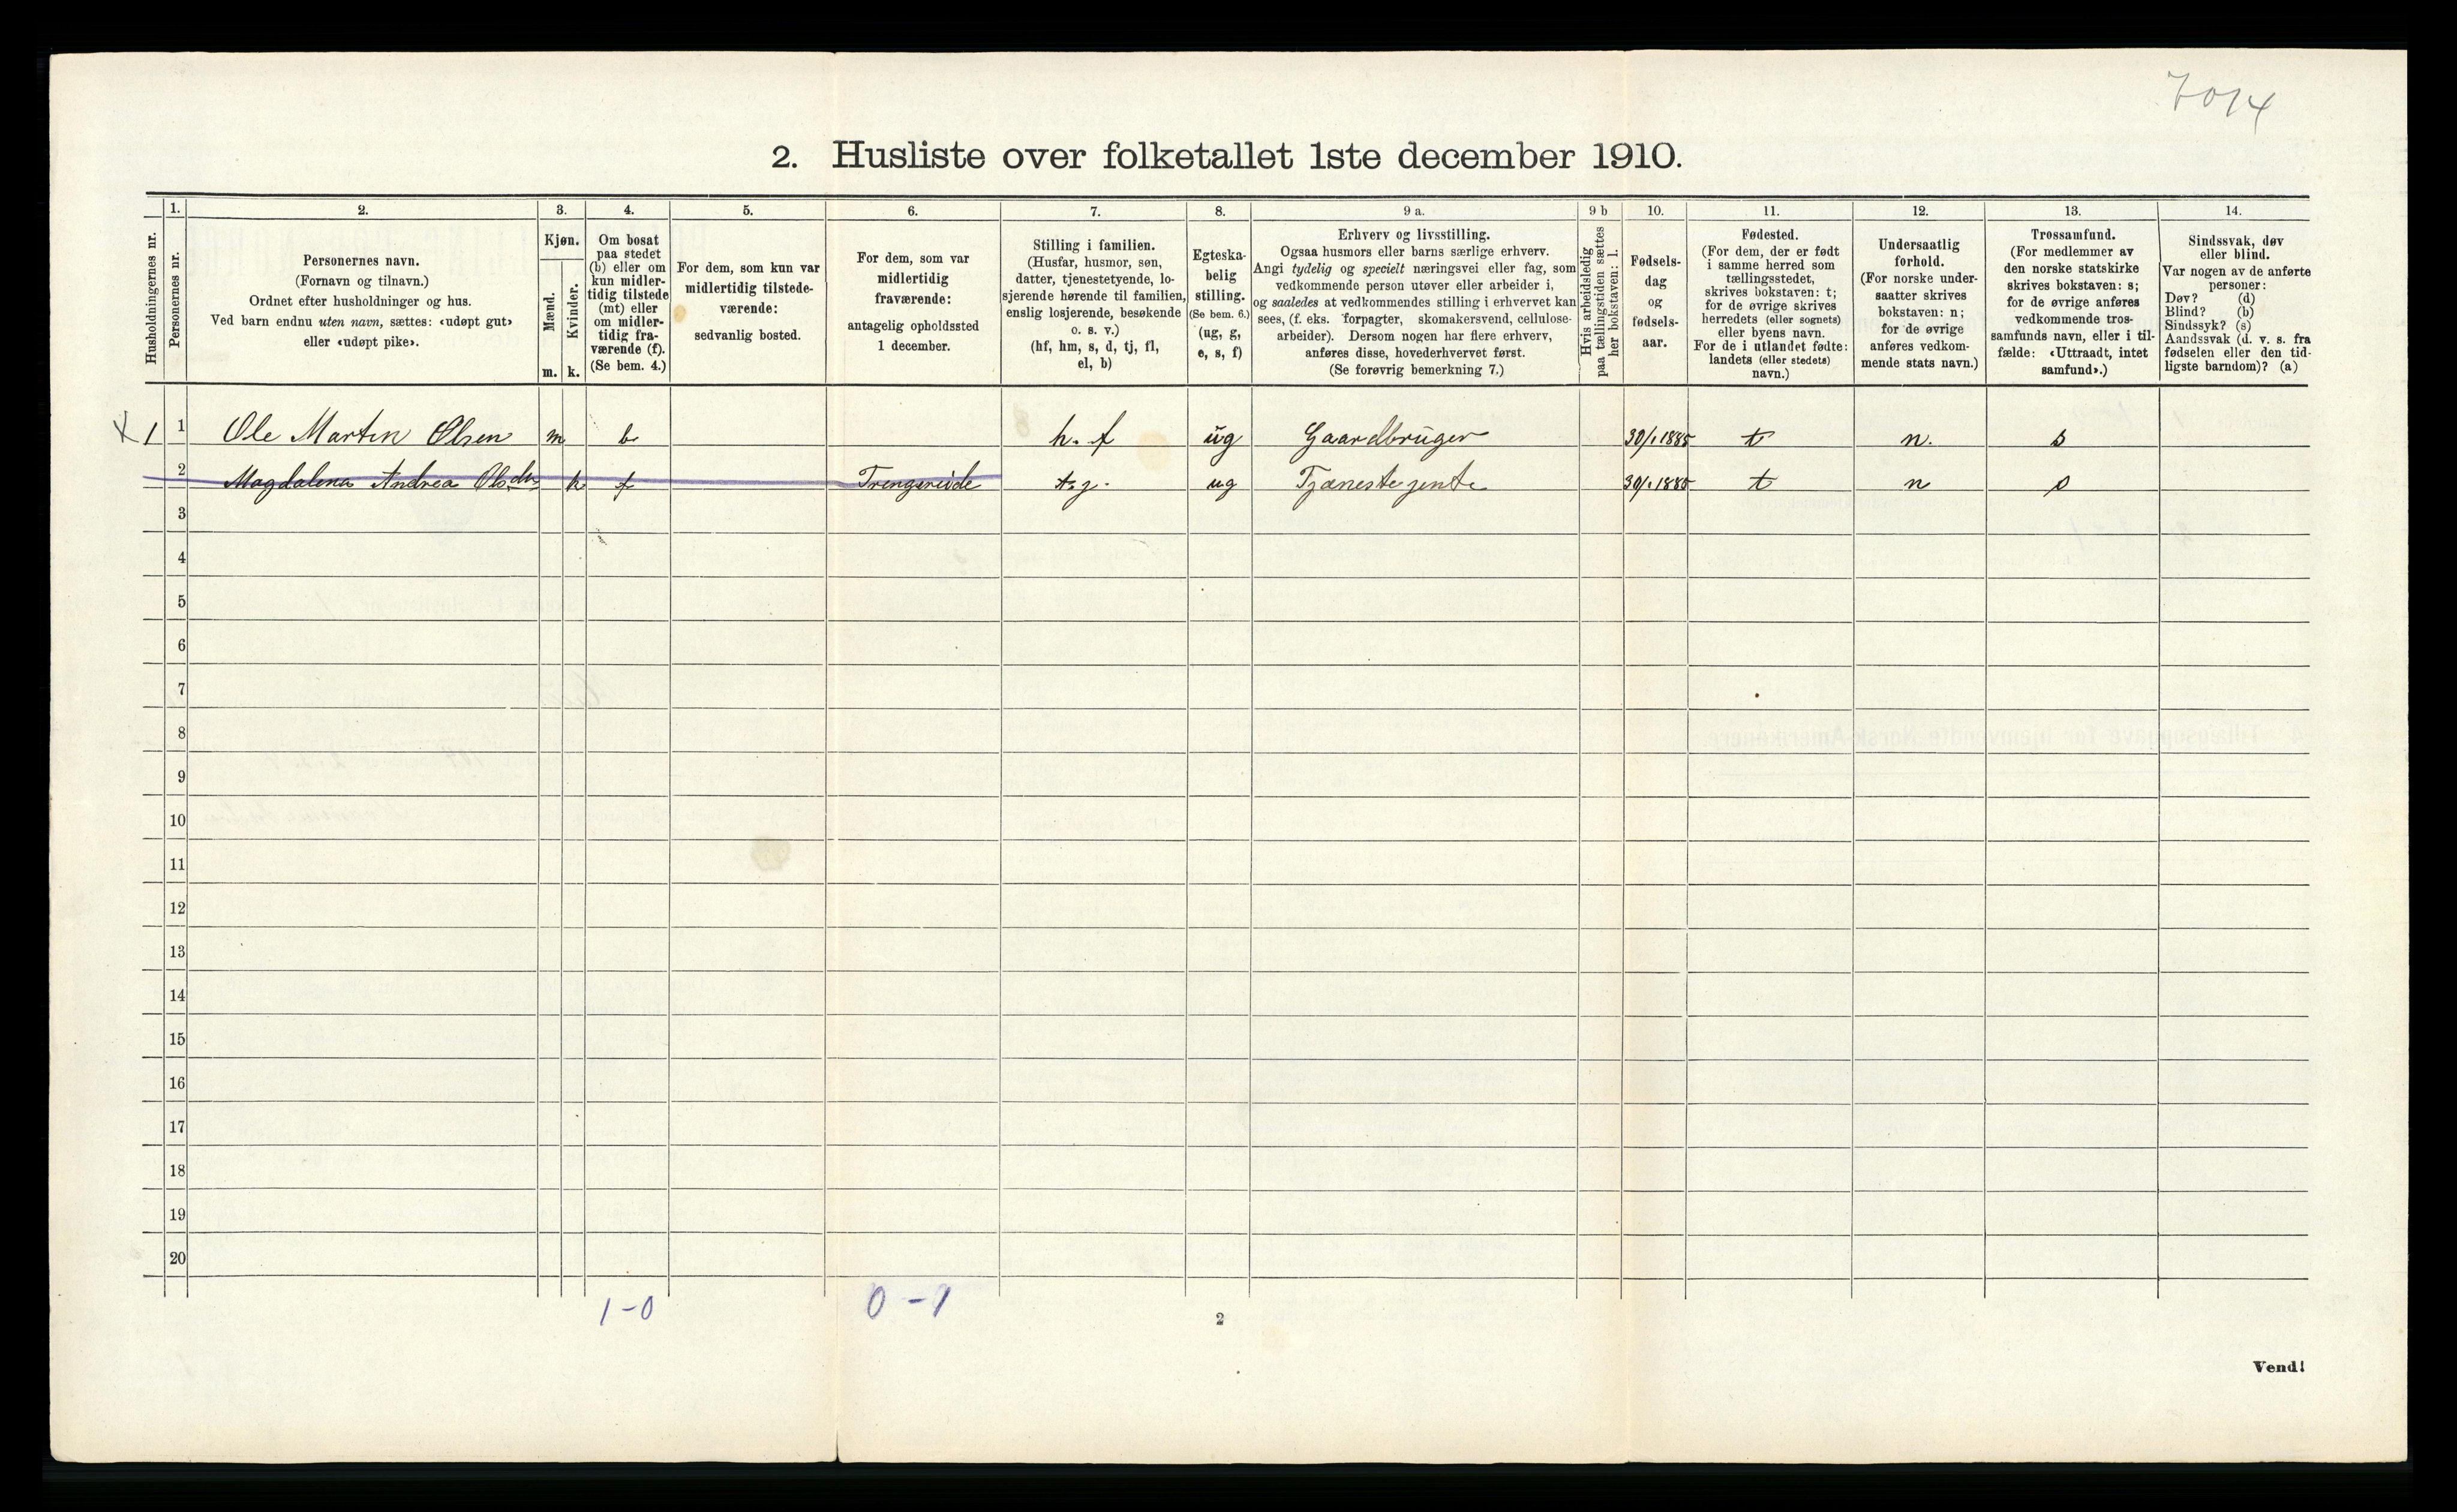 7014
2. Husliste over folketallet 1ste december 1910.
Husholdningernes nr.
1.
Personernes nr.
2.
Personernes navn.
(Fornavn og tilnavn.)
Ordnet efter husholdninger og hus.
Ved barn endnu uten navn, sættes: «udøpt gut»
eller «udøpt pike».
3.
Kjøn.
Mænd.
Kvinder.
m. k.
4.
Om bosat
paa stedet
(b) eller om
kun midler-
tidig tilstede
(mt) eller
om midler-
tidig fra-
værende (f).
(Se bem. 4.)
5.
For dem, som kun var
midlertidig tilstede-
værende:
sedvanlig bosted.
6.
For dem, som var
midlertidig
fraværende:
antagelig opholdssted
1 december.
7.
Stilling i familien.
(Husfar, husmor, søn,
datter, tjenestetyende, lo-
sjerende hørende til familien,
enslig losjerende, besøkende
o. s. v.)
(hf, hm, s, d, tj, fl,
el, b)
8.
Egteska-
belig
stilling.
(Se bem. 6.)
(ug, g,
e, s, f)
9 a.
Erhverv og livsstilling.
Ogsaa husmors eller barns særlige erhverv.
Angi tydelig og specielt næringsvei eller fag, som
vedkommende person utøver eller arbeider i,
og saaledes at vedkommendes stilling i erhvervet kan
sees, (f. eks. forpagter, skomakersvend, cellulose-
arbeider). Dersom nogen har flere erhverv,
anføres disse, hovederhvervet først.
(Se forøvrig bemerkning 7.)
9 b
Hvis arbeidsledig
paa tællingstiden sættes
her bokstaven: l.
10.
Fødsels-
dag
og
fødsels-
aar.
11.
Fødested.
(For dem, der er født
i samme herred som
tællingsstedet,
skrives bokstaven: t;
for de øvrige skrives
herredets (eller sognets)
eller byens navn.
For de i utlandet fødte:
landets (eller stedets)
navn.)
12.
Undersaatlig
forhold.
(For norske under-
saatter skrives
bokstaven: n;
for de øvrige
anføres vedkom-
mende stats navn.)
13.
Trossamfund.
(For medlemmer av
den norske statskirke
skrives bokstaven: s;
for de øvrige anføres
vedkommende tros-
samfunds navn, eller i til-
fælde: «Uttraadt, intet
samfund».)
14.
Sindssvak, døv
eller blind.
Var nogen av de anførte
personer:
Døv? (d)
Blind? (b)
Sindssyk? (s)
Aandssvak (d. v. s. fra
fødselen eller den tid-
ligste barndom)? (a)
X 1 1 Ole Martin Olsen m b h. f ug Gaardbruger 30/1 1885 t n. s
2 Magdalena Andrea Olsdtr k f t.j. ug Tjænestejente 30/1 1885 t n s
3
4
5
6
7
8
9
10
11
12
13
14
15
16
17
18
19
20
1-0 0-1
2
Vend!